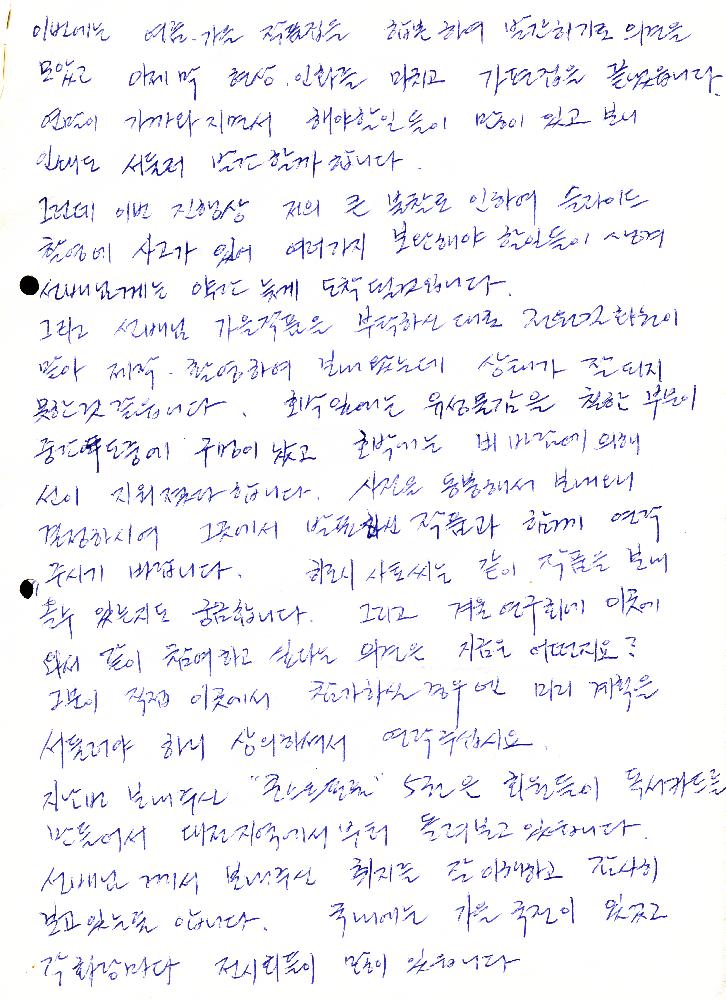 이번에는 여름.가을 작품집을 합본하여 발간하기로 의견을
모았고 이제 막 현상.인화를 마치고 가편집을 끝냈읍니다.
연말이 가까와 지면서 해야할일들이 많이 있고 보니
인쇄도 서둘러 발간할까 합니다.
그런데 이번 진행상 저의 큰 불찰로 인하여 슬라이드
촬영에 사고가 있어 여러가지 보완해야 할일들이 생겨
선배님께는 약간 늦게 도착될것입니다.
그리고 선배님 가을작품은 부탁하신대로 전원길 회원이
맡아 제작.촬영하여 보내 왔는데 상태가 잘 되지
못한것 같읍니다. 호박잎에는 유성물감을 칠한 부분이
중간도중에 구멍이 났고 호박에는 비바람에 의해
선이 지워졌다 합니다. 사진을 동봉해서 보내오니
결정하시여 그곳에서 발표하신 작품과 함께 연락
주시기 바랍니다. 히로시 사토씨는 같이 작품을 보내
올수 있는지도 궁금합니다. 그리고 겨울 연구회에 이곳에
와서 같이 참여하고 싶다는 의견은 지금은 어떤지요?
그분이 직접 이곳에서 참가하실 경우엔 미리 계획을
서둘러야 하니 상의하셔서 연락주십시요.
지난번 보내주신 5권은 회원들이 독서카드를
만들어서 대전지역에서부터 돌려보고 있읍니다.
선배님께서 보내주신 취지를 잘 이해하고 감사히
보고있는듯 합니다. 국내에는 가을 국전이 있었고
각 화랑마다 전시회들이 많이 있읍니다